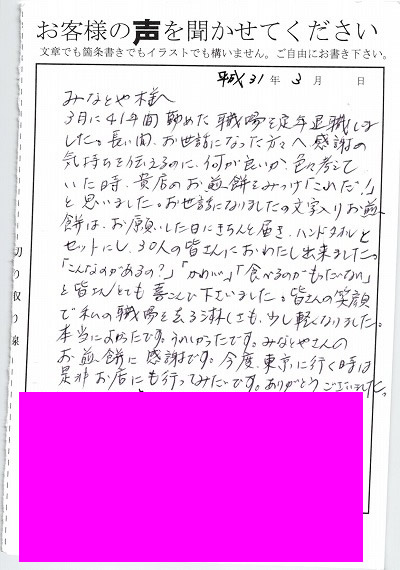 お客様の声を聞かせてください
文章でも箇条書きでもイラストでも構いません。ご自由にお書き下さい。
平成31年 3月 日
みなとや様へ
3月に41年間勤めた職場を定年退職しま
した。長い間、お世話になった方々へ感謝の
気持ちを伝えるのに、何が良いか、色々考えて
いた時、貴店のお煎餅をみつけ「これだ!」
と思いました。お世話になりましたの文字入りお煎
餅は、お願いした日にきちんと届き、ハンドタオルと
セットにし、30人の皆さんにおわたし出来ました。
「こんなのがあるの?」「かわいい」「食べるのがもったいない」
と皆さんとても喜こんで下さいました。皆さんの笑顔
で私の職場を去る淋しさも、少し軽くなりました。
本当によかったです。うれしかったです。みなとやさんの
お煎餅に感謝です。今度、東京に行く時は
是非お店にも行ってみたいです。ありがとうございました。
切り取り線